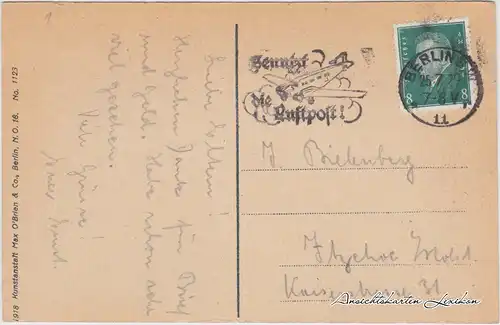 1918 Kunstanstalt Max O'Brien & Co., Berlin, N.O. 18. No. 1123
Liebe Eltern!
Herzlichen Dank für Brief
und Geld. Habe schon sehr
viel gesehen.
Viele Grüsse!
Euer Ernst.
Benutzt
die Luftpost!
BERLIN
11
8 8
J. Bielenberg
Itzehoe Holst.
Kaiserstrasse 31
Ansichtskarten-Lexikon